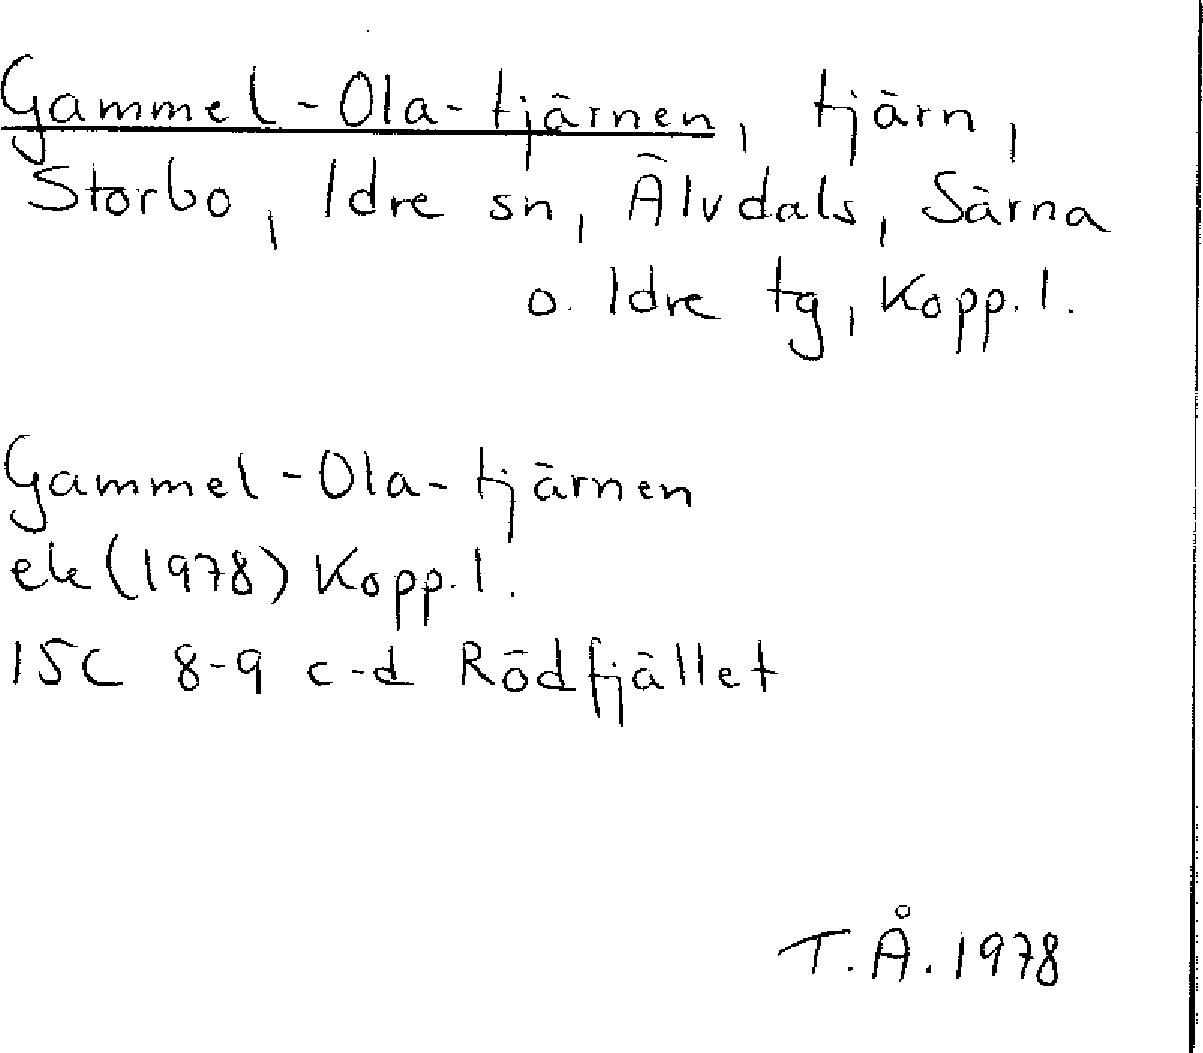 Gammel-Ola-tjärnen, tjärn,
Storbo, Idre sn, Älvdals, Särna
o. Idre tg, Kopp. l.
Gammel-Ola-tjärnen
ek (1978) Kopp. l.
15C 8-9 c-d Rödfjället
T.Å. 1978